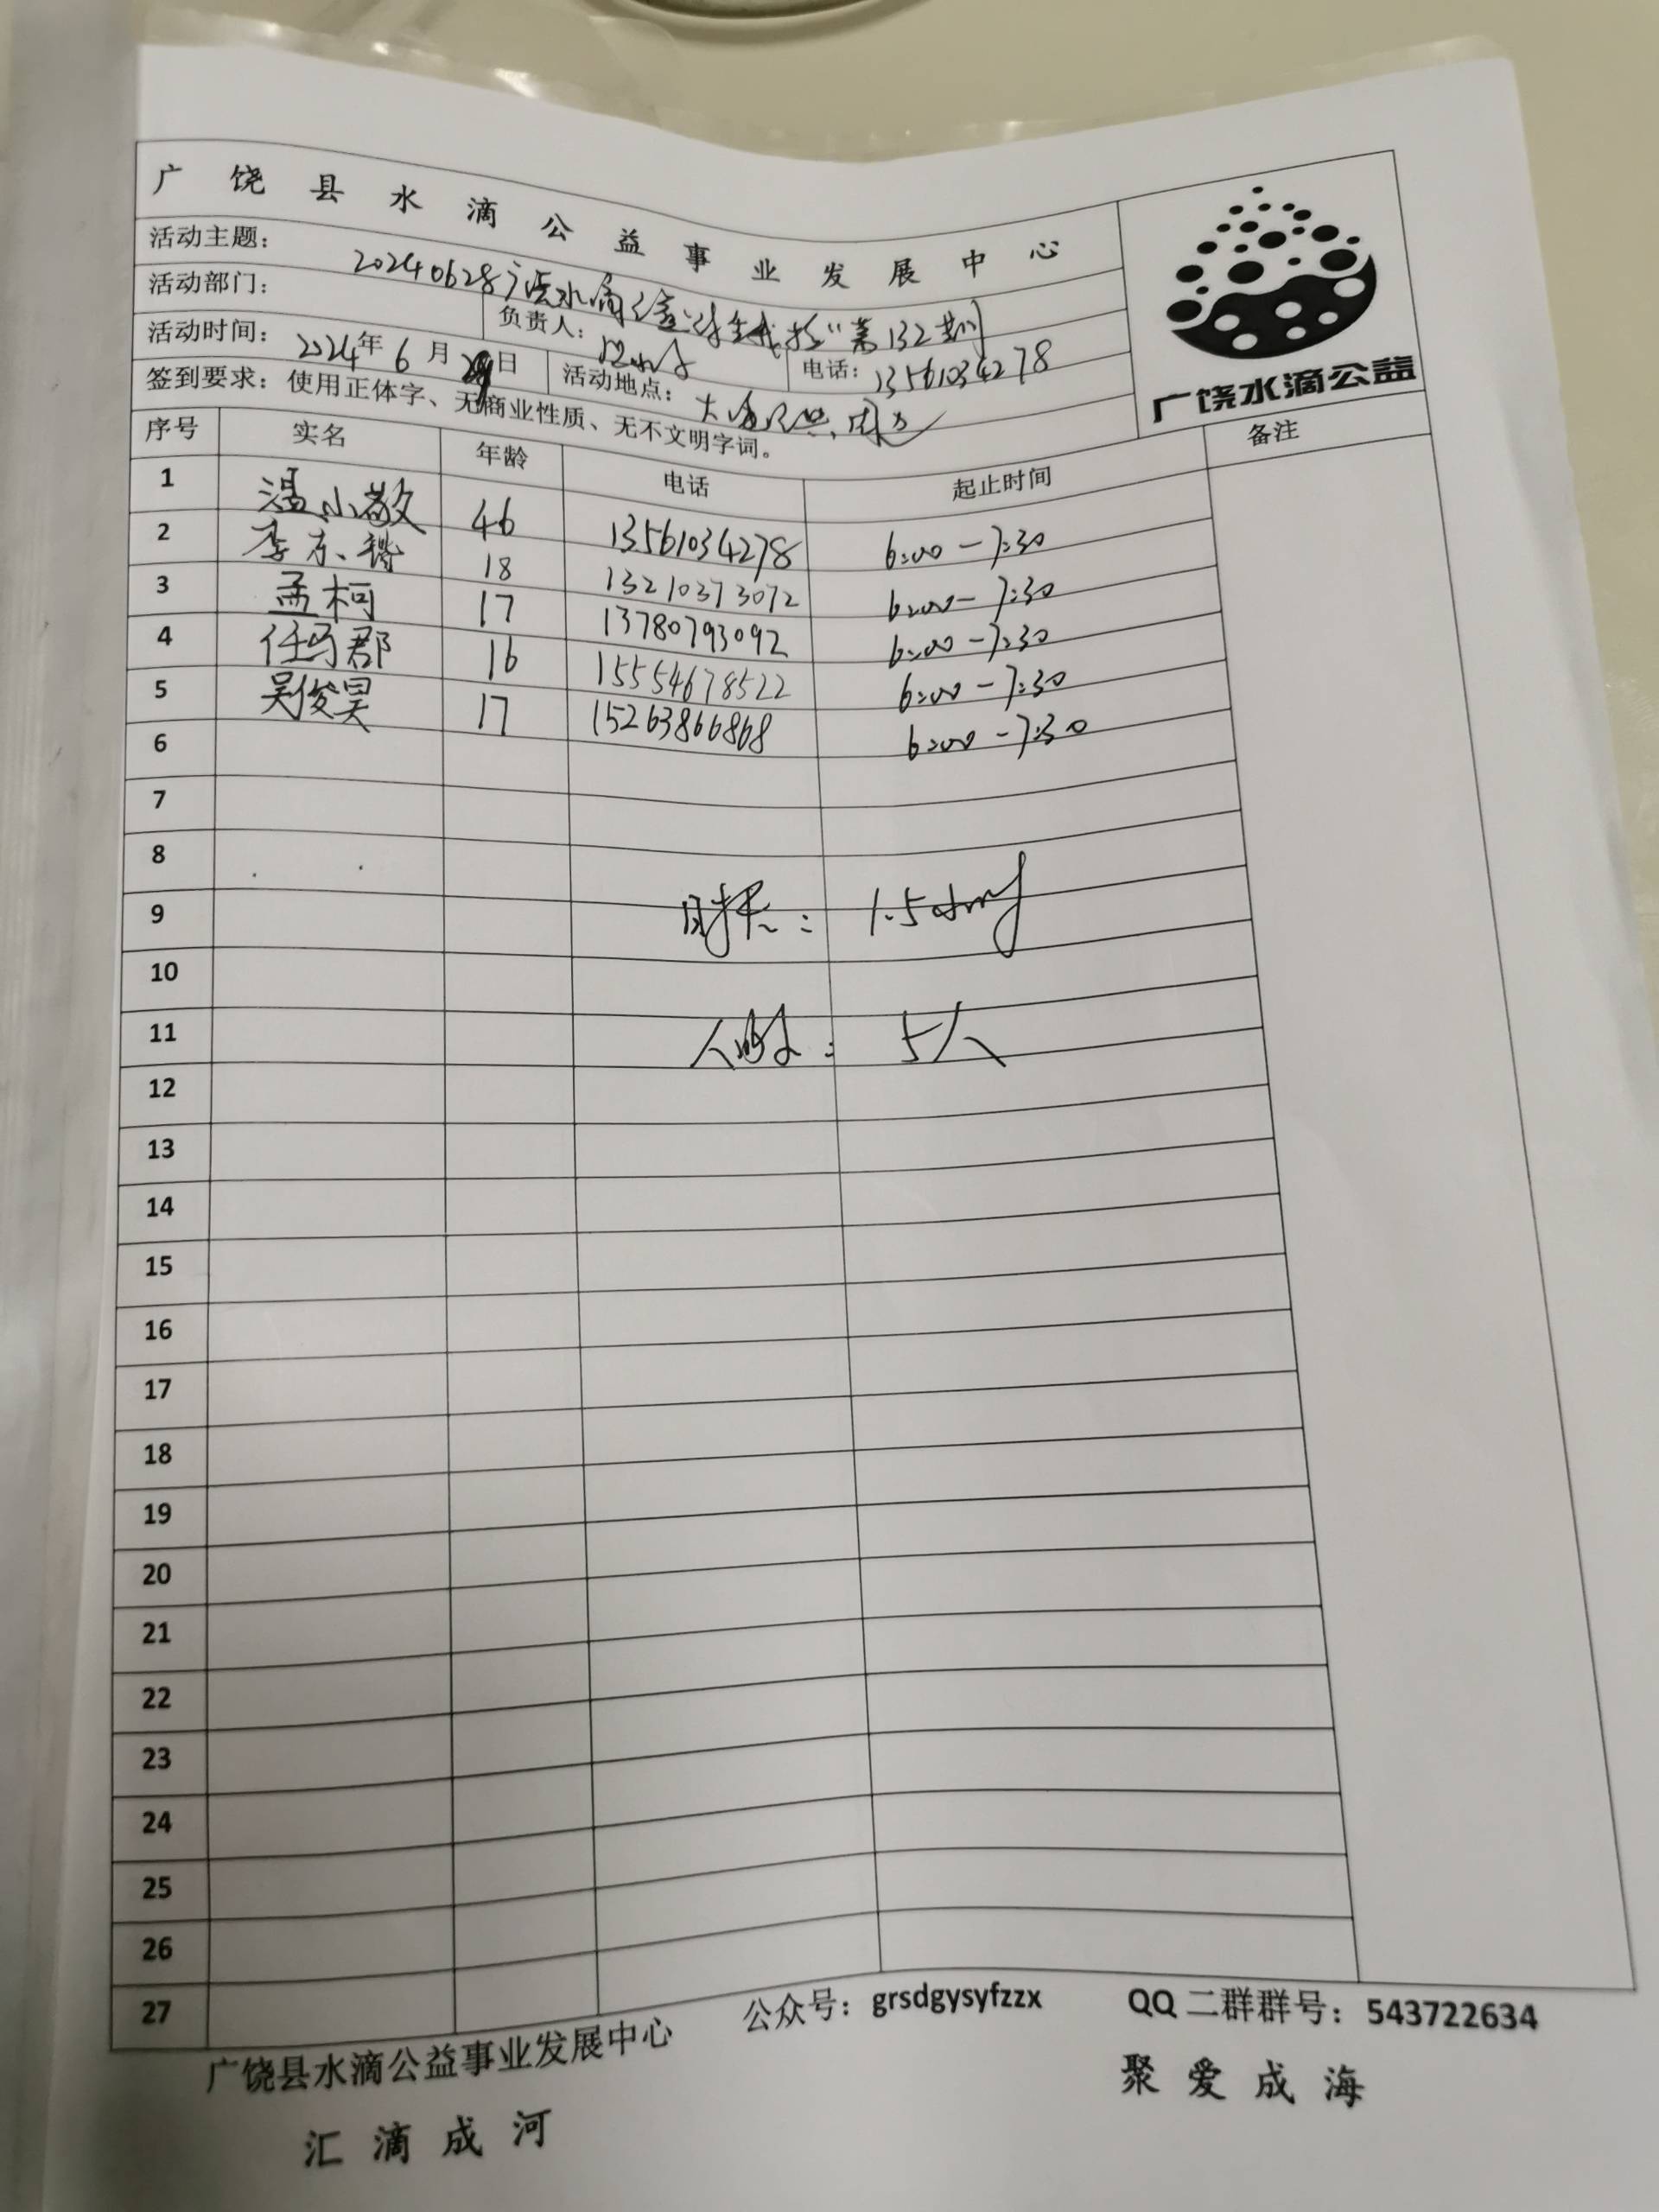 广饶县水滴公益事业发展中心
活动主题：20240628 水滴公益 第132期
活动部门： 负责人： 电话：13561034278
活动时间：2024年6月 日 活动地点：
签到要求：使用正体字、无商业性质、无不文明字词。
广饶水滴公益
序号 实名 年龄 电话 起止时间 备注
1 温小敬 46 13561034278 6:00-7:30
2 李东 18 13210373072 6:00-7:30
3 孟柯 17 13780793092 6:00-7:30
4 任 郡 16 15554678522 6:00-7:30
5 吴俊昊 17 15263866868 6:00-7:30
6
7
8
9 时长： 1.5小时
10
11 人数： 5人
12
13
14
15
16
17
18
19
20
21
22
23
24
25
26
27
广饶县水滴公益事业发展中心 公众号：grsdgysyfzzx QQ二群群号：543722634
汇滴成河 聚爱成海